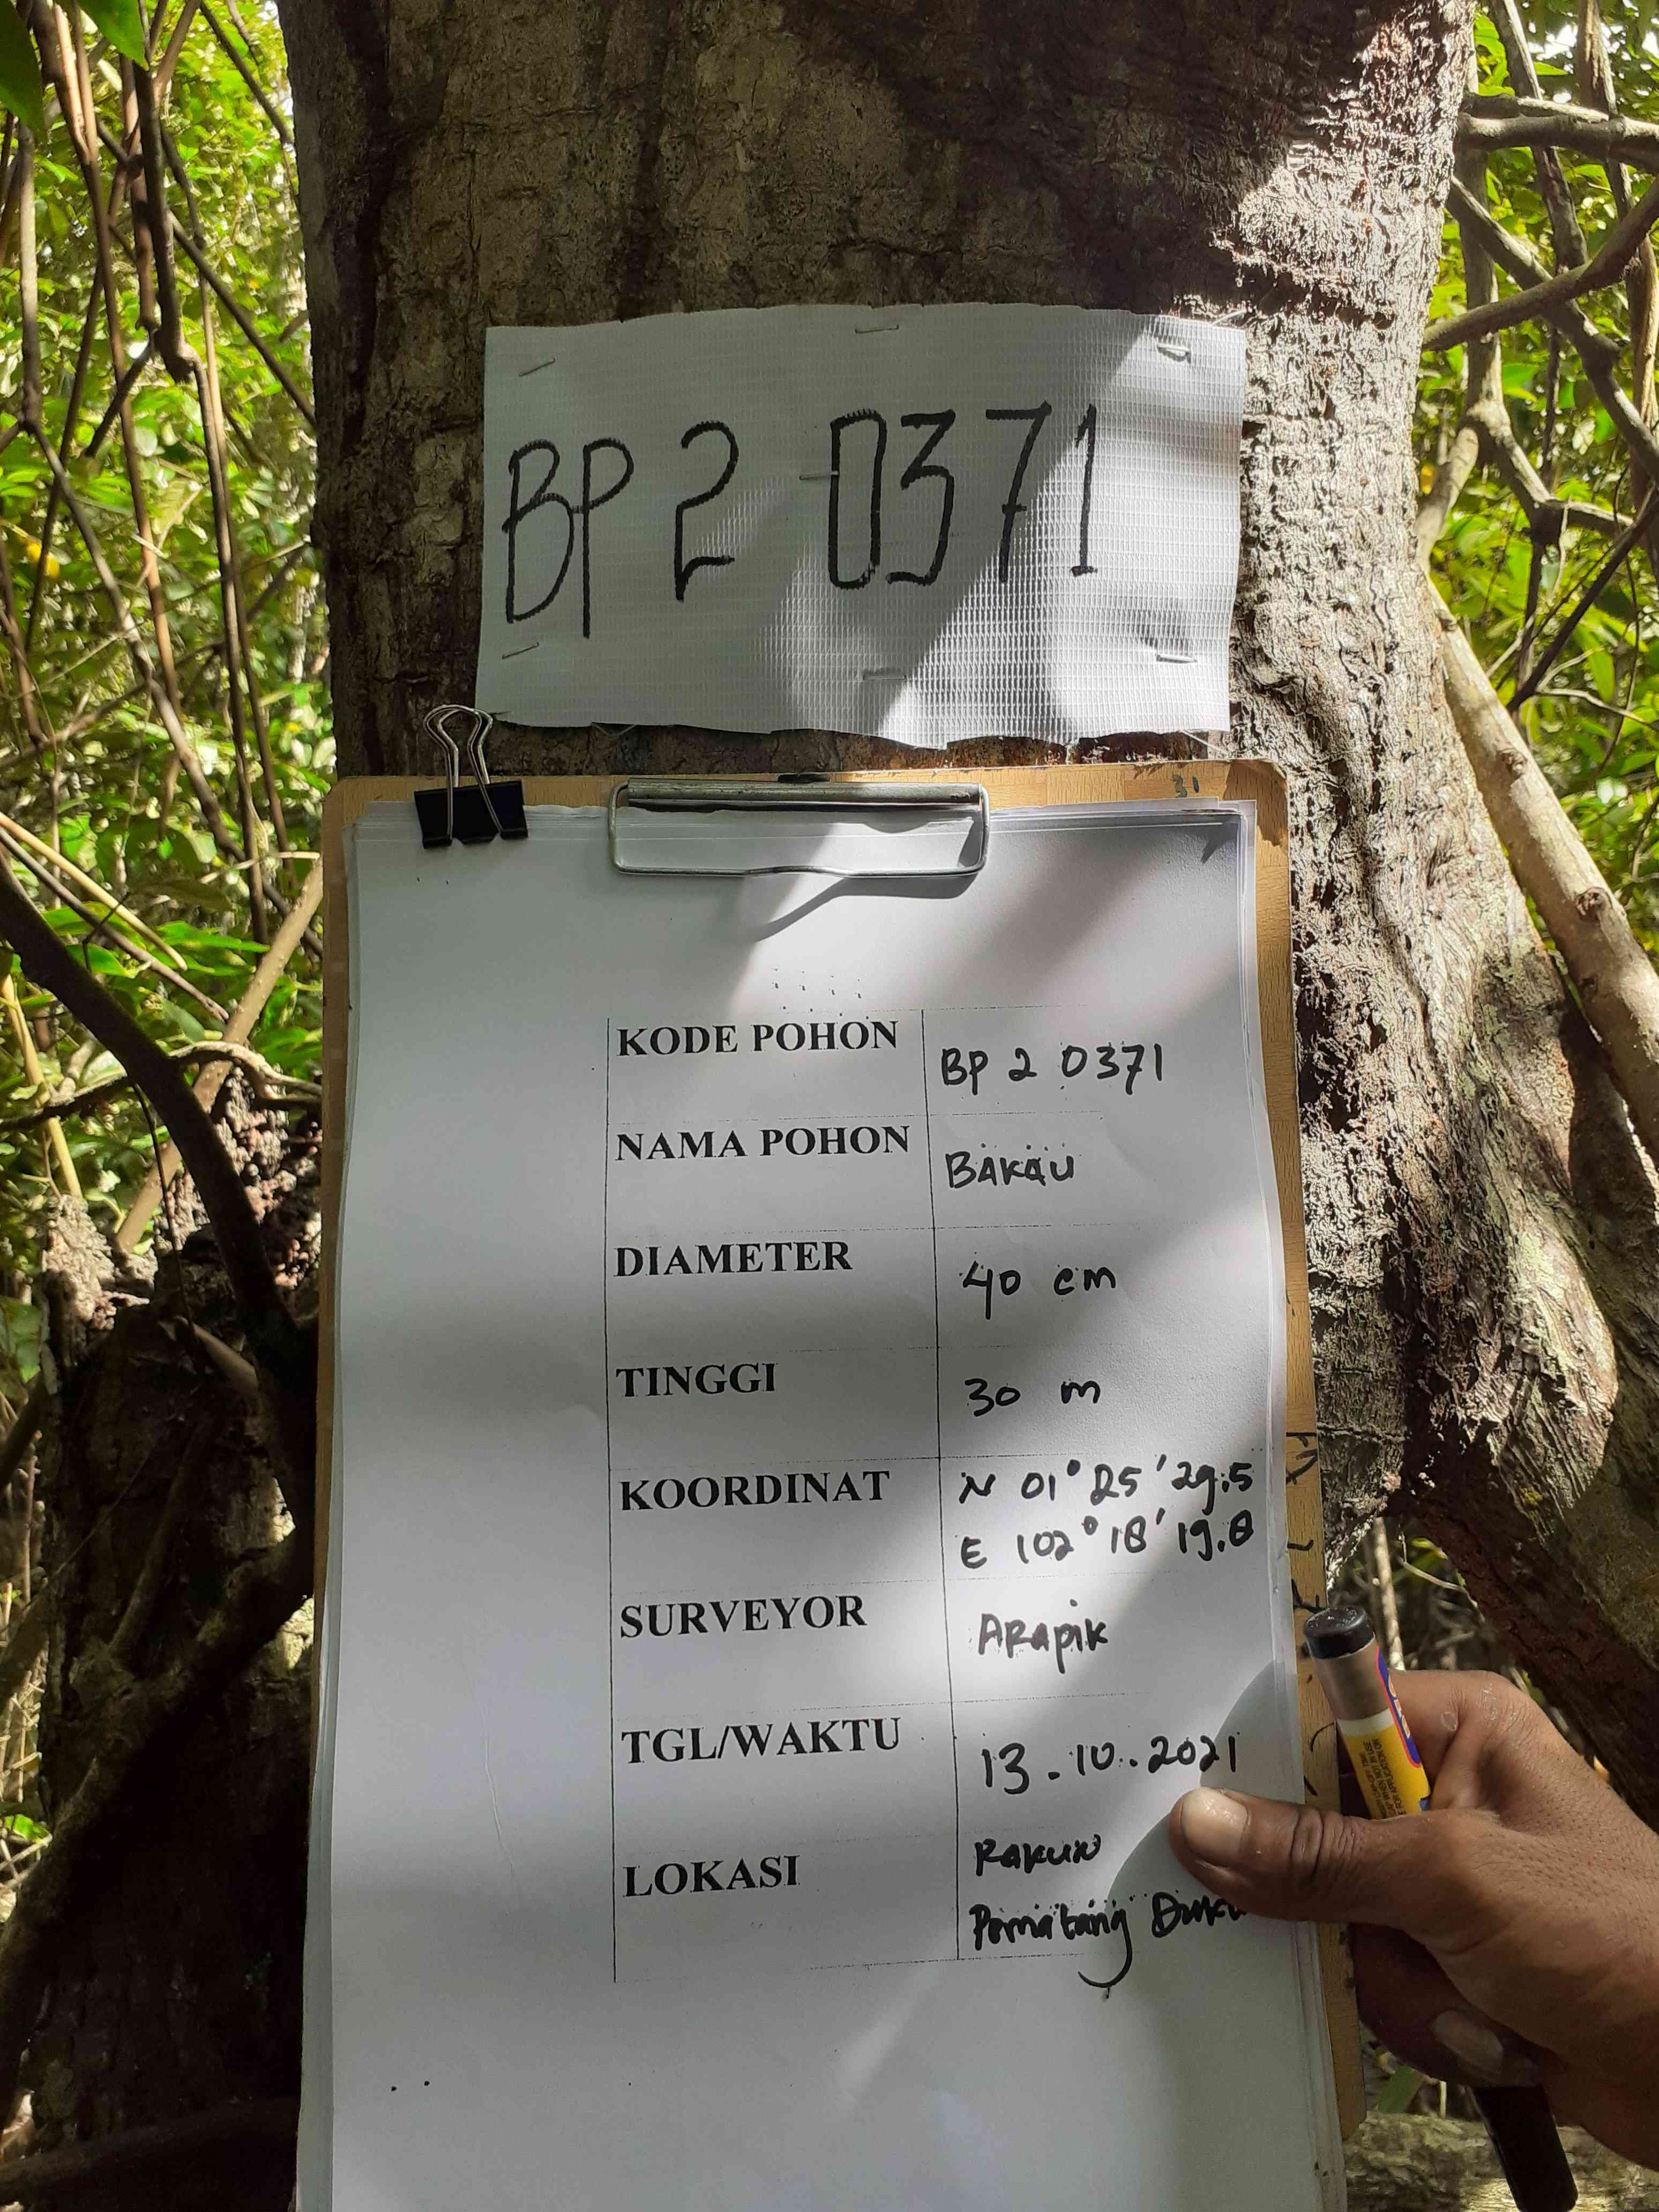 BP 2 0371
KODE POHON BP 2 0371
NAMA POHON BAKAU
DIAMETER 40 cm
TINGGI 30 m
KOORDINAT N 01° 25' 29.5
E 102° 18' 19.8
SURVEYOR ARapik
TGL/WAKTU 13.10.2021
LOKASI
Pematang